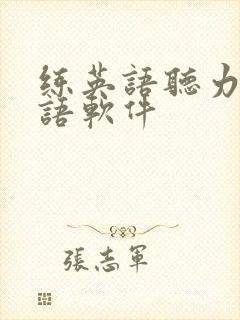 練英語聽力
語軟件
張志軍